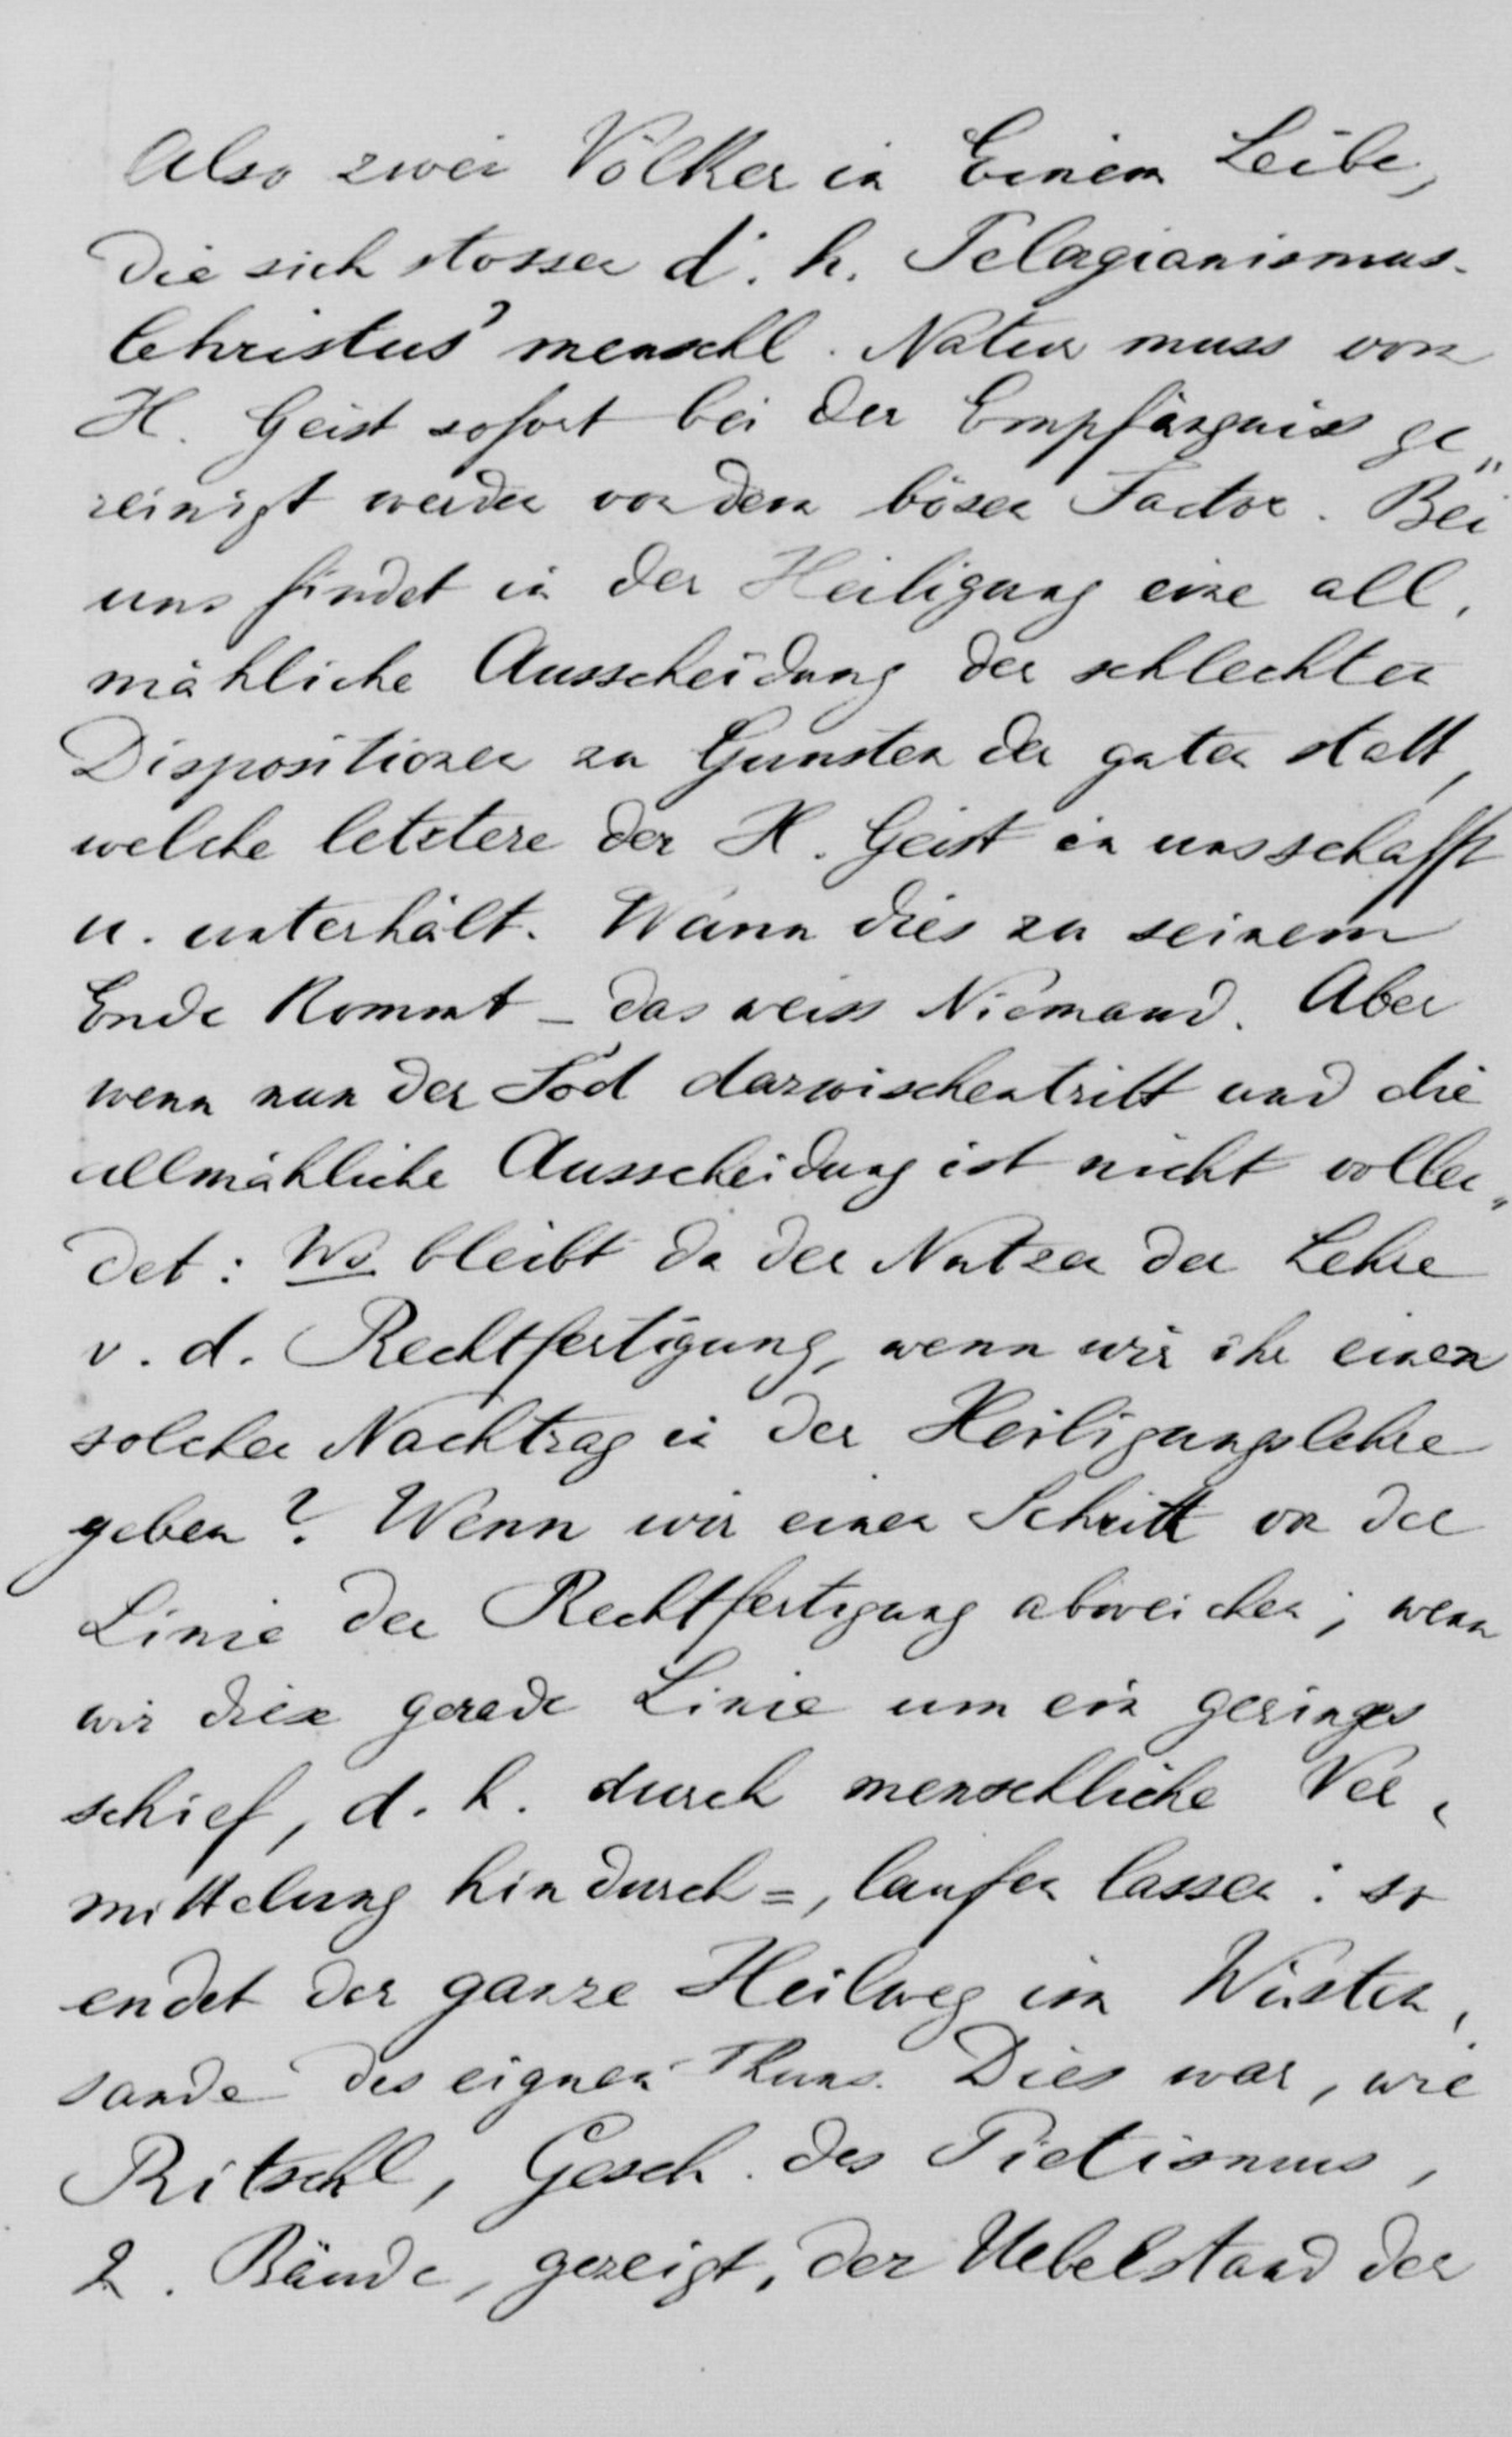 Also zwei Völker in Einem Leibe,
die sich stossen d. h. Pelagianismus.
Christus' menschl. Natur muss vom
H. Geist sofort bei der Empfängniss ge„
reinigt werden von dem bösen Factor. Bei
uns findet in der Heiligung eine all,
mähliche Ausscheidung der schlechten
Dispositionen zu Gunsten der guten statt,
welche letztere der H. Geist in uns schafft
u. unterhält. Wann dies zu seinem
Ende kommt – das weiss Niemand. Aber
wenn nun der Tod dazwischentritt und die
allmähliche Ausscheidung ist nicht vollen„
det: Wo bleibt da der Nutzen der Lehre
v. d. Rechtfertigung, wenn wir ihr einen
solchen Nachtrag in der Heiligungslehre
geben? Wenn wir einen Schritt von der
Linie der Rechtfertigung abweichen; wenn
wir diese gerade Linie um ein geringes
schief, d. h. durch menschliche Ver,
mittelung hindurch=, laufen lassen: so
endet der ganze Heilweg im Wüsten,
sande des eignen Thuns. Dies war, wie
Ritschl, Gesch. des Pietismus,
2. Bände, gezeigt, der Uebelstand der